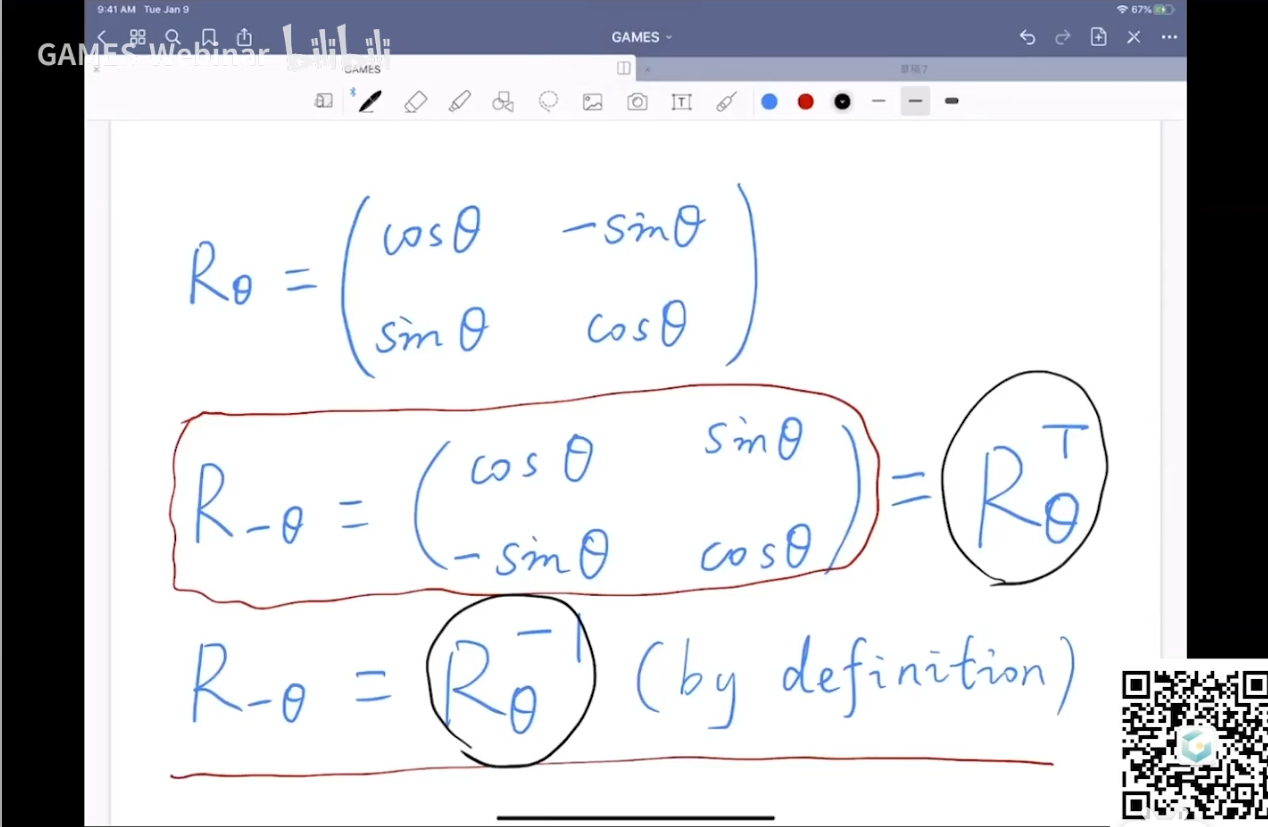 9:41 AM Tue Jan 9 67%
GAMES
GAMES-Webinar bilibili
GAMES 草稿7
T
Rθ = ( cosθ -sinθ
sinθ cosθ )
R-θ = ( cosθ sinθ
-sinθ cosθ ) = Rθ^T
R-θ = Rθ^-1 (by definition)